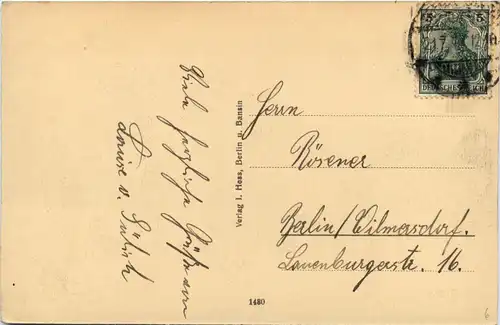 Viele herzliche Grüße von
Louise v.
Verlag I. Hess, Berlin u. Bansin
1480
5 5
DEUTSCHES REICH
Herrn
Rösener
Berlin/Wilmersdorf.
Lauenburgerstr. 16.